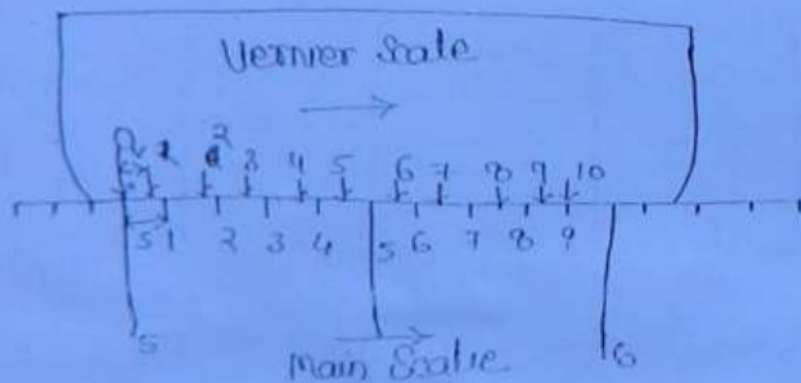 Vernier Scale
1 2 3 4 5 6 7 8 9 10
S 1 2 3 4 5 6 7 8 9
5 6
Main Scalie